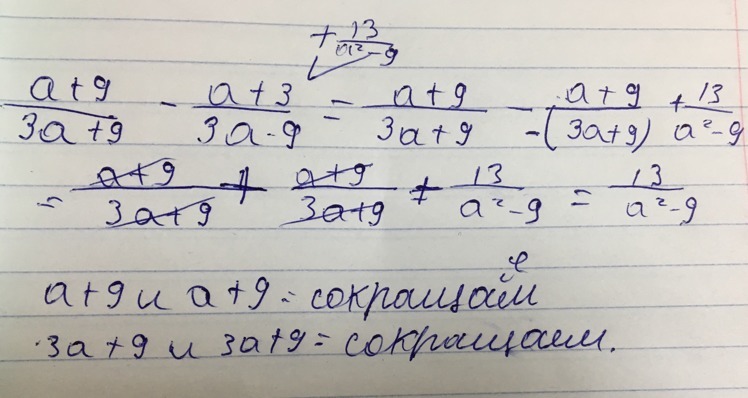 + 13/(a²-9)
(a+9)/(3a+9) - (a+3)/(3a-9) = (a+9)/(3a+9) - (a+9)/(-(3a+9)) + 13/(a²-9)
= (a+9)/(3a+9) + (a+9)/(3a+9) + 13/(a²-9) = 13/(a²-9)
a+9 и a+9 = сокращаем
3a+9 и 3a+9 = сокращаем.